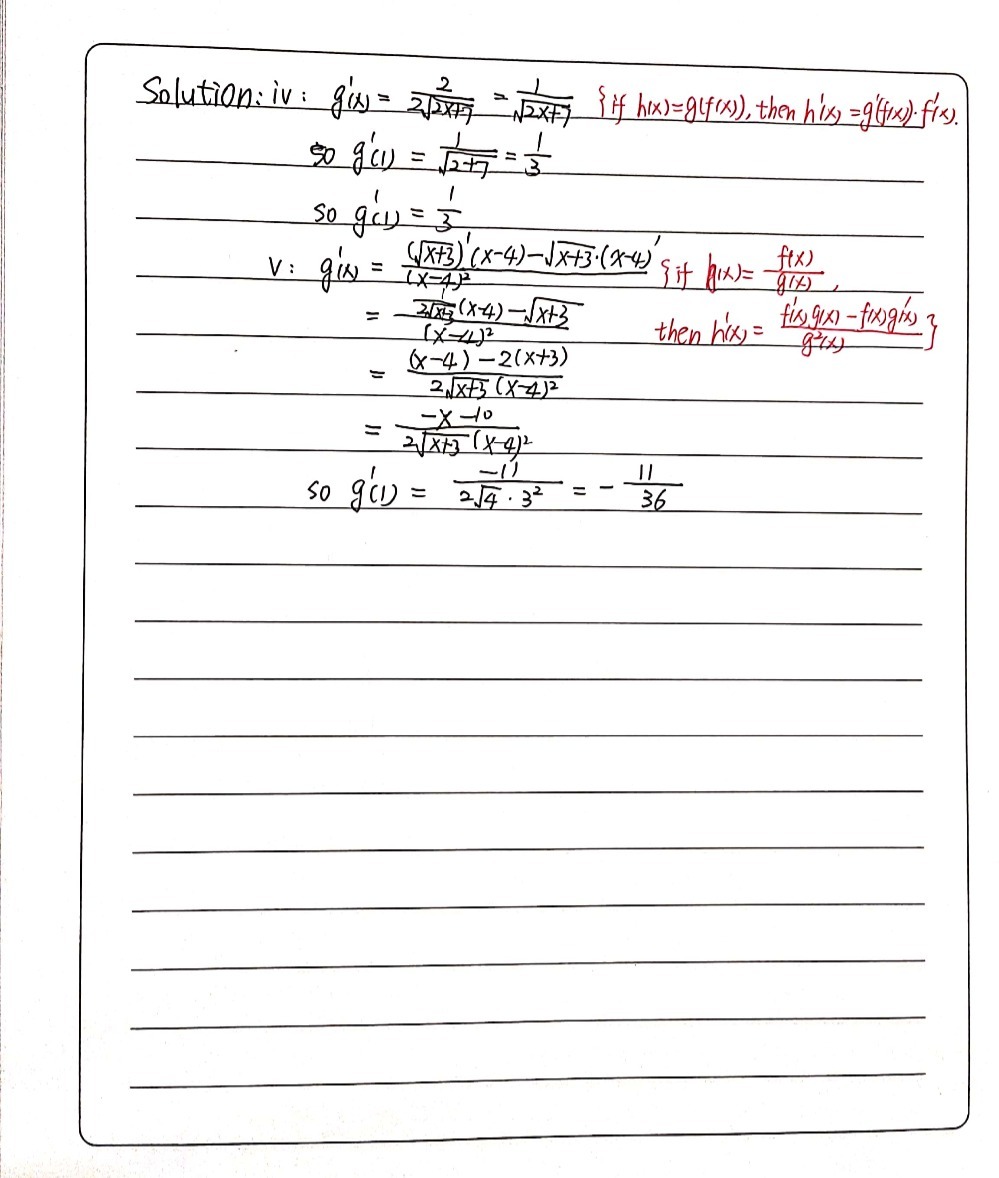 Solution: iv: g'(x) = 2/(2√(2x+7)) = 1/√(2x+7) {if h(x)=g(f(x)), then h'(x) =g'(f(x))·f'(x).
so g'(1) = 1/√(2+7) = 1/3
so g'(1) = 1/3
V: g'(x) = ((√(x+3))'(x-4)-√(x+3)·(x-4)')/(x-4)² {if h(x)= f(x)/g(x) ,
= (1/(2√(x+3)) (x-4) -√(x+3))/(x-4)² then h'(x) = (f'(x)g(x) - f(x)g'(x))/g²(x) }
= ((x-4) -2(x+3))/(2√(x+3) (x-4)²)
= (-x -10)/(2√(x+3) (x-4)²)
so g'(1) = -11/(2√4 · 3²) = - 11/36